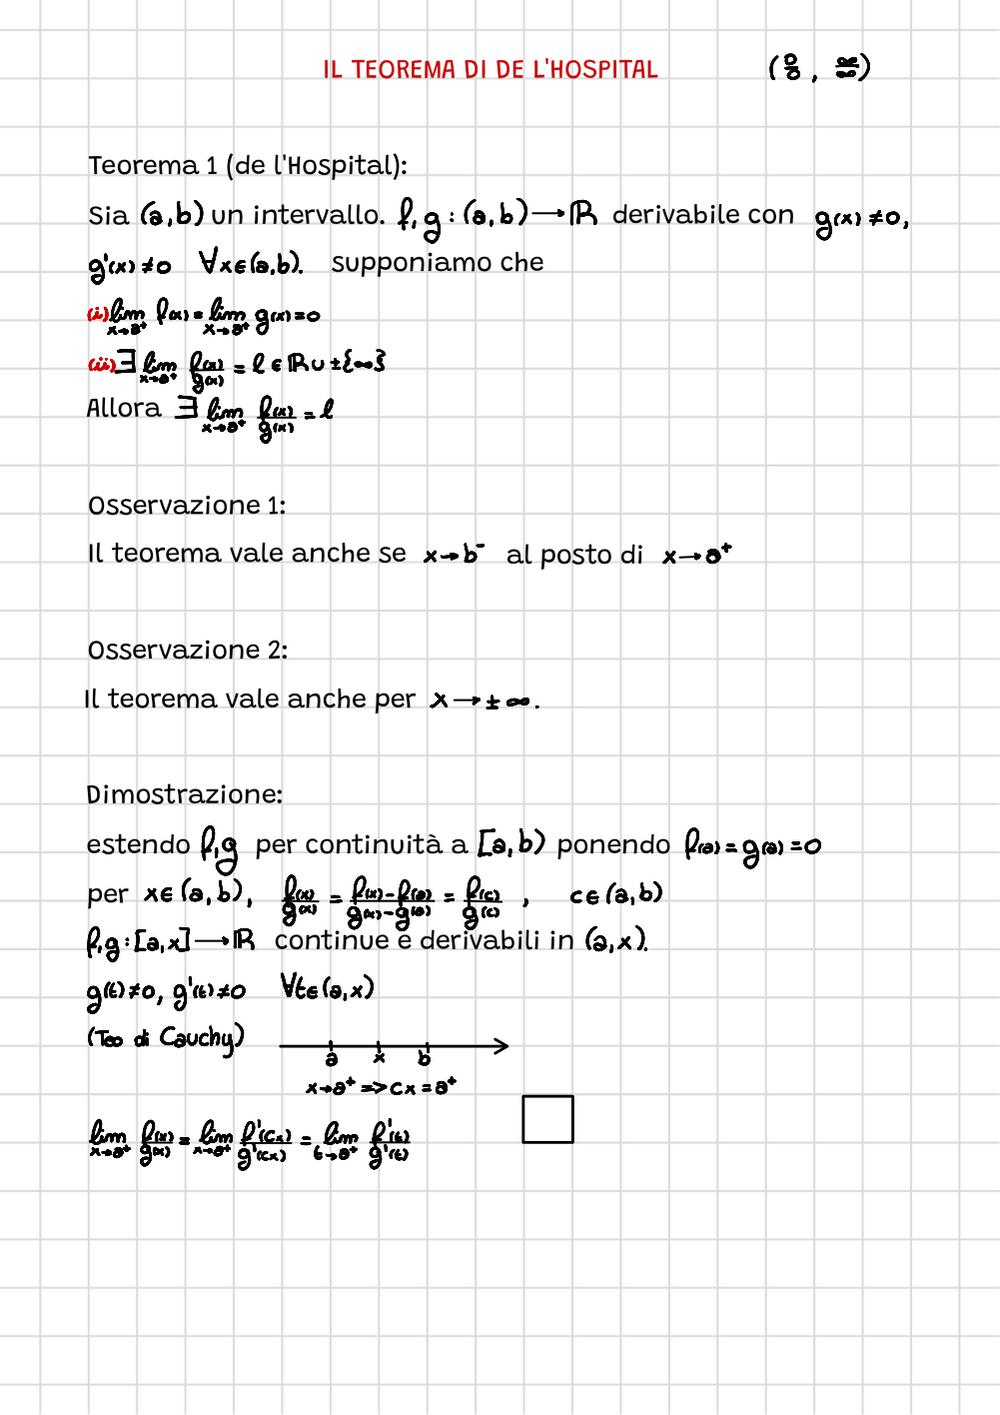 IL TEOREMA DI DE L'HOSPITAL (0/0, ∞/∞)
Teorema 1 (de l'Hospital):
Sia (a,b) un intervallo. f,g : (a,b) → ℝ derivabile con g(x) ≠ 0,
g'(x) ≠ 0 ∀x∈(a,b). supponiamo che
(i) lim x→a⁺ f(x) = lim x→a⁺ g(x) = 0
(ii) ∃ lim x→a⁺ f(x)/g(x) = l ∈ ℝ ∪ ±{∞}
Allora ∃ lim x→a⁺ f(x)/g(x) = l
Osservazione 1:
Il teorema vale anche se x→b⁻ al posto di x→a⁺
Osservazione 2:
Il teorema vale anche per x→±∞.
Dimostrazione:
estendo f,g per continuità a [a,b) ponendo f(a) = g(a) = 0
per x∈(a,b), f(x)/g(x) = f(x)-f(a)/g(x)-g(a) = f(c)/g(c) , c∈(a,b)
f,g : [a,x] → ℝ continue e derivabili in (a,x).
g(t) ≠ 0, g'(t) ≠ 0 ∀t∈(a,x)
(Teo di Cauchy)
a x b
x→a⁺ => cx = a⁺
lim x→a⁺ f(x)/g(x) = lim x→a⁺ f'(cx)/g'(cx) = lim t→a⁺ f'(t)/g'(t)